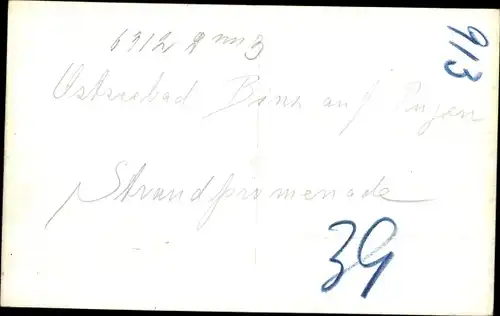 6912
913
Ostseebad Binz auf Rügen
Strandpromenade
39